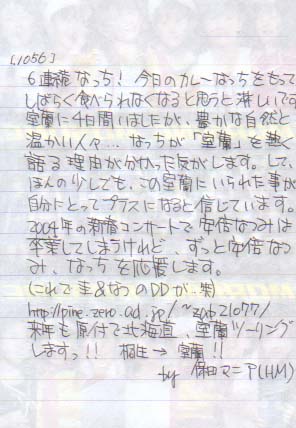 [1056]
6連荘なっち!今日のカレーなっちをもって
しばらく食べられなくなると思うと淋しいです
室蘭に4日間いましたが、豊かな自然と
温かい人々...なっちが「室蘭」を熱く
語る理由が分かった気がします。そして、
ほんの少しでも、この室蘭にいられた事が
自分にとってプラスになると信じています。
2004年の新春コンサートで安倍なつみは
卒業してしまうけれど、ずっと安倍なつ
み、なっちを応援します。
(これで圭&なつのDDが..笑)
http://pine.zero.ad.jp/~zab21077/
来年も原付で北海道、室蘭ツーリング
しますっ!!桐生→室蘭!!
by 保田マニア(HM)